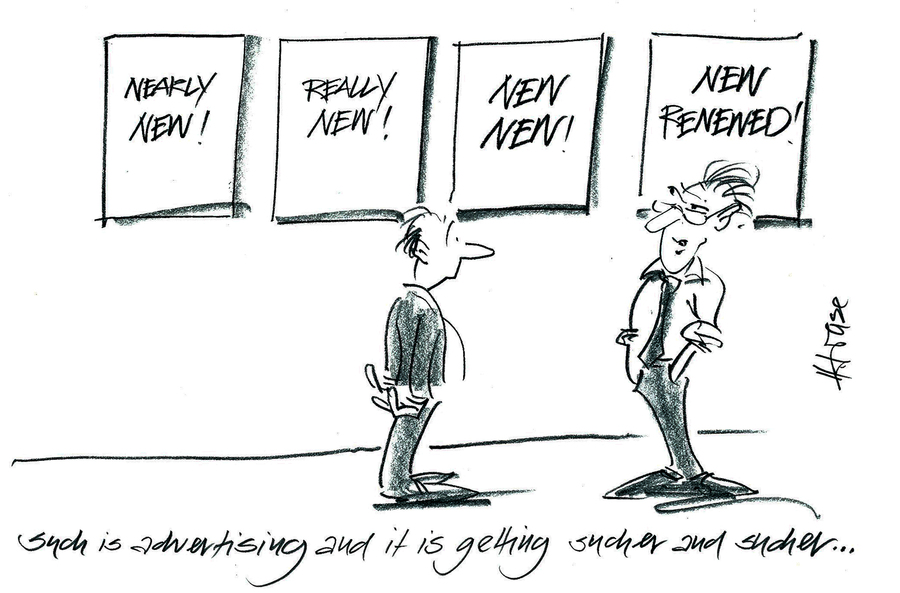 NEARLY
NEW!
REALLY
NEW!
NEW
NEW!
NEW
RENEWED!
such is advertising and it is getting sucher and sucher...